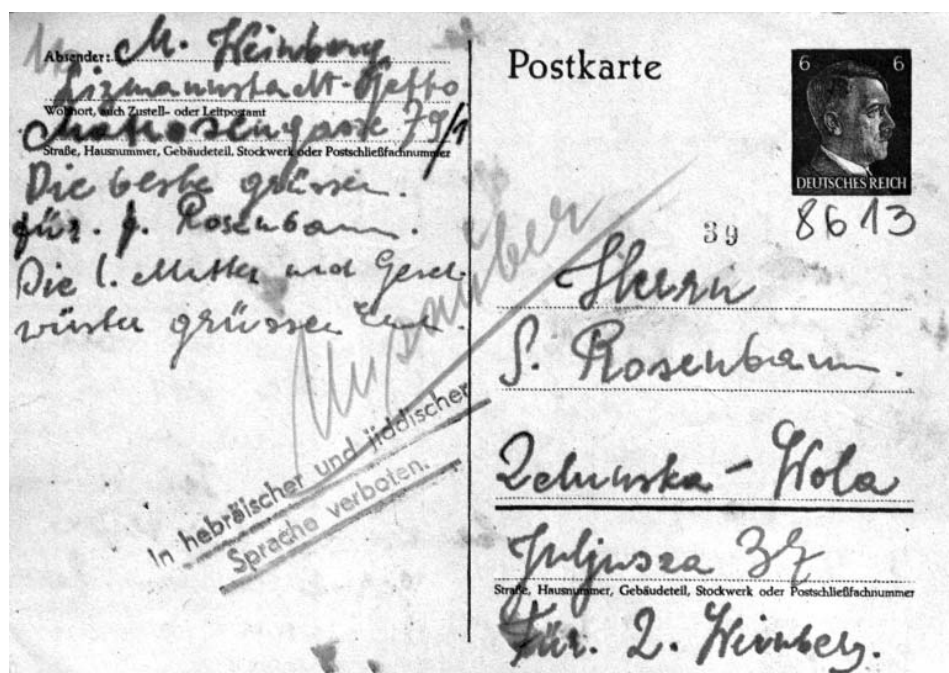 Absender: M. Weinberg
Lizmannstadt-Getto
Wohnort, auch Zustell- oder Leitpostamt
Matrosengasse 79/1
Straße, Hausnummer, Gebäudeteil, Stockwerk oder Postschließfachnummer
Die beste grüssen.
für. J. Rosenbaum.
Die l. Mutter und Gesch-
wüster grüssen Euch.
Unsauber
In hebräischer und jiddischer
Sprache verboten.
Postkarte
6 6
DEUTSCHES REICH
8613
39
Herrn
S. Rosenbaum.
Zdunska-Wola
Juljusza 37
Straße, Hausnummer, Gebäudeteil, Stockwerk oder Postschließfachnummer
Für. Z. Weinberg.